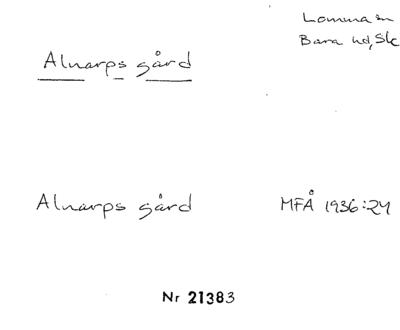 Lomma sn
Bara hd, Sk
Alnarps gård
Alnarps gård MFÅ 1936:24
Nr 21383